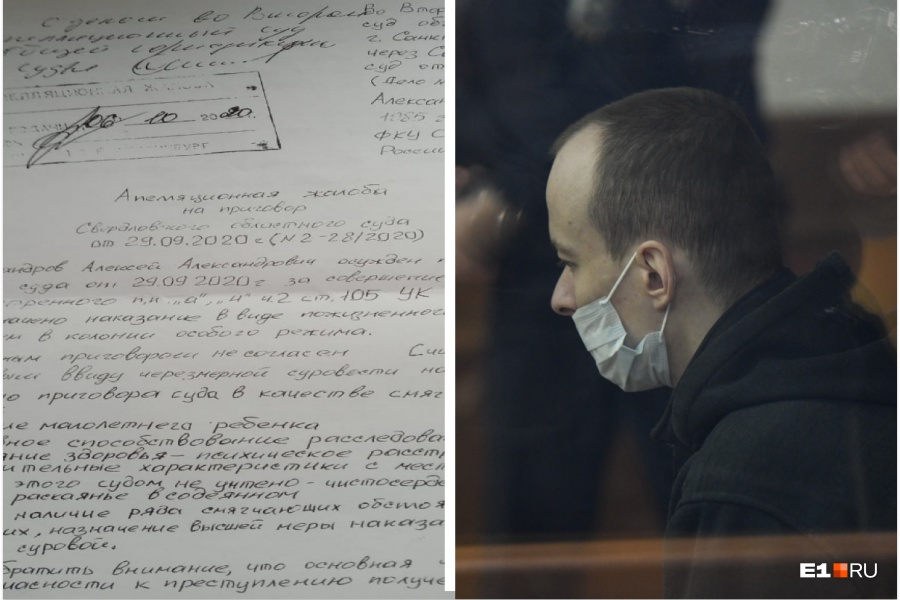 Сделом во Второй
апелляционный суд
общей юрисдикции
судье
АПЕЛЛЯЦИОННАЯ ЖАЛОБА
06 10 2020.
Во Втор
суд об
г. Санк
через С
суд от
(Дело
Алексан
1985 г
ФКУ С
Росси
Апелляционная жалоба
на приговор
Свердловского областного суда
от 29.09.2020 г (N 2-28/2020)
андров Алексей Александрович осужден
суда от 29.09.2020 г за совершение
тренного п.п „а", „и" ч.2 ст. 105 УК
начено наказание в виде пожизненно
ем в колонии особого режима.
ным приговором не согласен Счи
ым ввиду черезмерной суровости на
о приговора суда в качестве смяг
ие малолетнего ребенка
вное способствование расследова
яние здоровья – психическое расст
ительные характеристики с мест
этого судом не учтено – чистосерде
раскаянье в содеянном
наличие ряда смягчающих обстоя
их, назначение высшей меры наказа
суровой.
братить внимание, что основная
иасности к преступлению получе
E1.RU